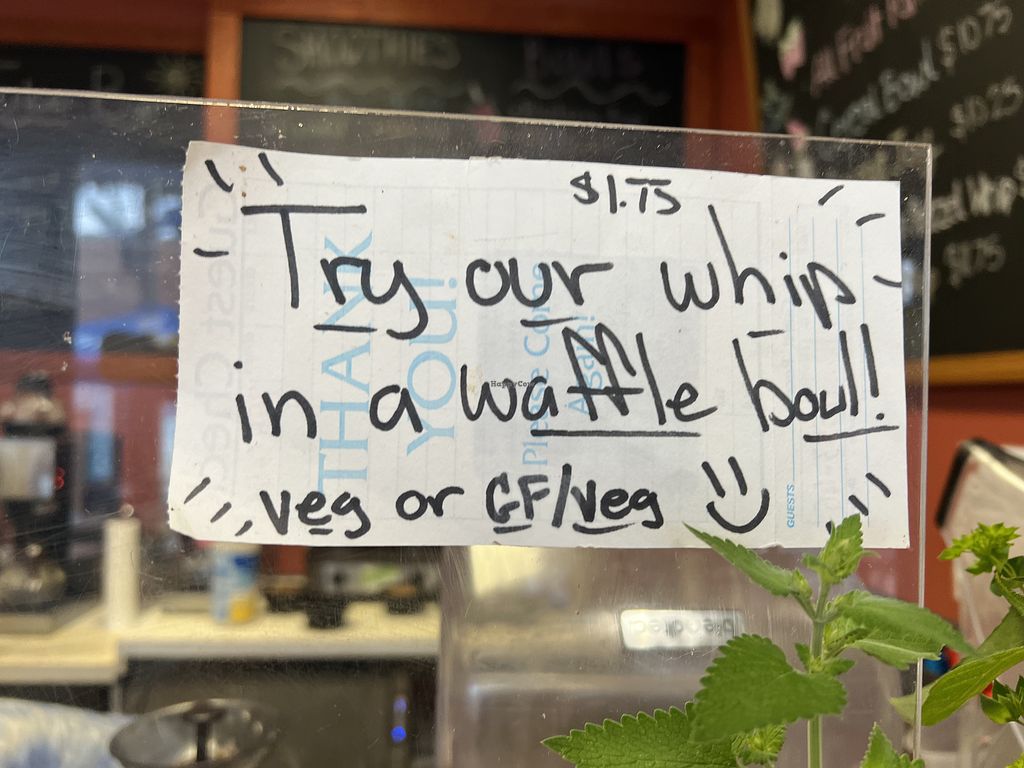 $1.75
Try our whip
in a waffle bowl!
veg or GF/veg
THANK
YOU!
Please Come
Again!
GUESTS
Guest Check
HappyCow
blendtec
SMOOTHIES
$10.75
$10.25
$1.75